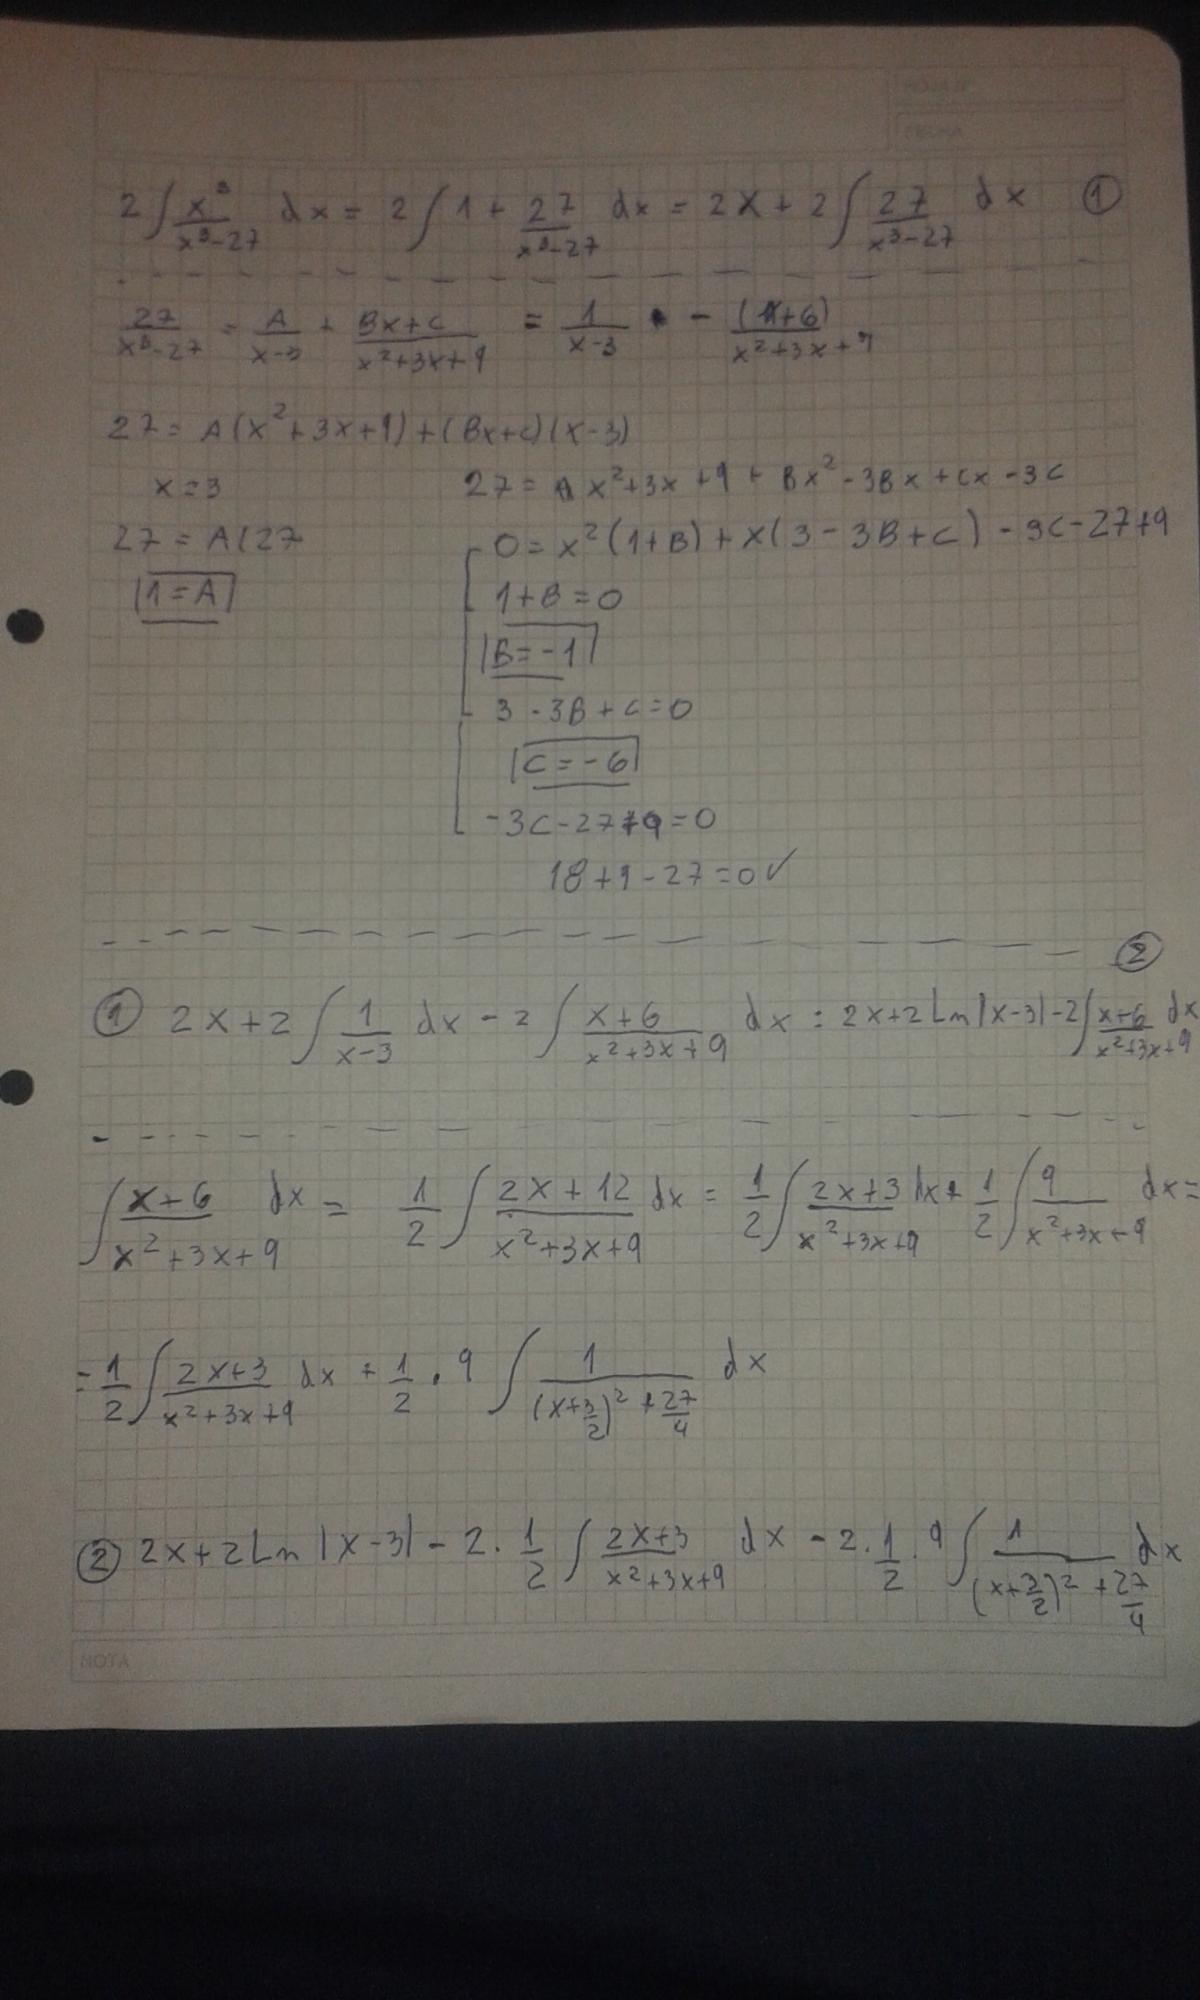 HOJA Nº
FECHA
2 ∫ x³/(x³-27) dx = 2 ∫ 1 + 27/(x³-27) dx = 2x + 2 ∫ 27/(x³-27) dx ①
27/(x³-27) = A/(x-3) + (Bx+C)/(x²+3x+9) = 1/(x-3) - (x+6)/(x²+3x+9)
27 = A(x²+3x+9)+(Bx+C)(x-3)
x=3
27 = A(27
1=A
27 = A x²+3x+9 + Bx²-3Bx+Cx-3C
0 = x²(1+B) + x(3-3B+C) - 3C-27+9
1+B=0
B=-1
3-3B+C=0
C=-6
-3C-27+9=0
18+9-27=0 ✓
②
① 2x+2 ∫ 1/(x-3) dx - 2 ∫ (x+6)/(x²+3x+9) dx = 2x+2Ln|x-3|-2 ∫ (x+6)/(x²+3x+9) dx
∫ (x+6)/(x²+3x+9) dx = 1/2 ∫ (2x+12)/(x²+3x+9) dx = 1/2 ∫ (2x+3)/(x²+3x+9) dx + 1/2 ∫ 9/(x²+3x+9) dx =
= 1/2 ∫ (2x+3)/(x²+3x+9) dx + 1/2 . 9 ∫ 1/((x+3/2)²+27/4) dx
② 2x+2Ln|x-3| - 2. 1/2 ∫ (2x+3)/(x²+3x+9) dx - 2. 1/2 . 9 ∫ 1/((x+3/2)²+27/4) dx
NOTA